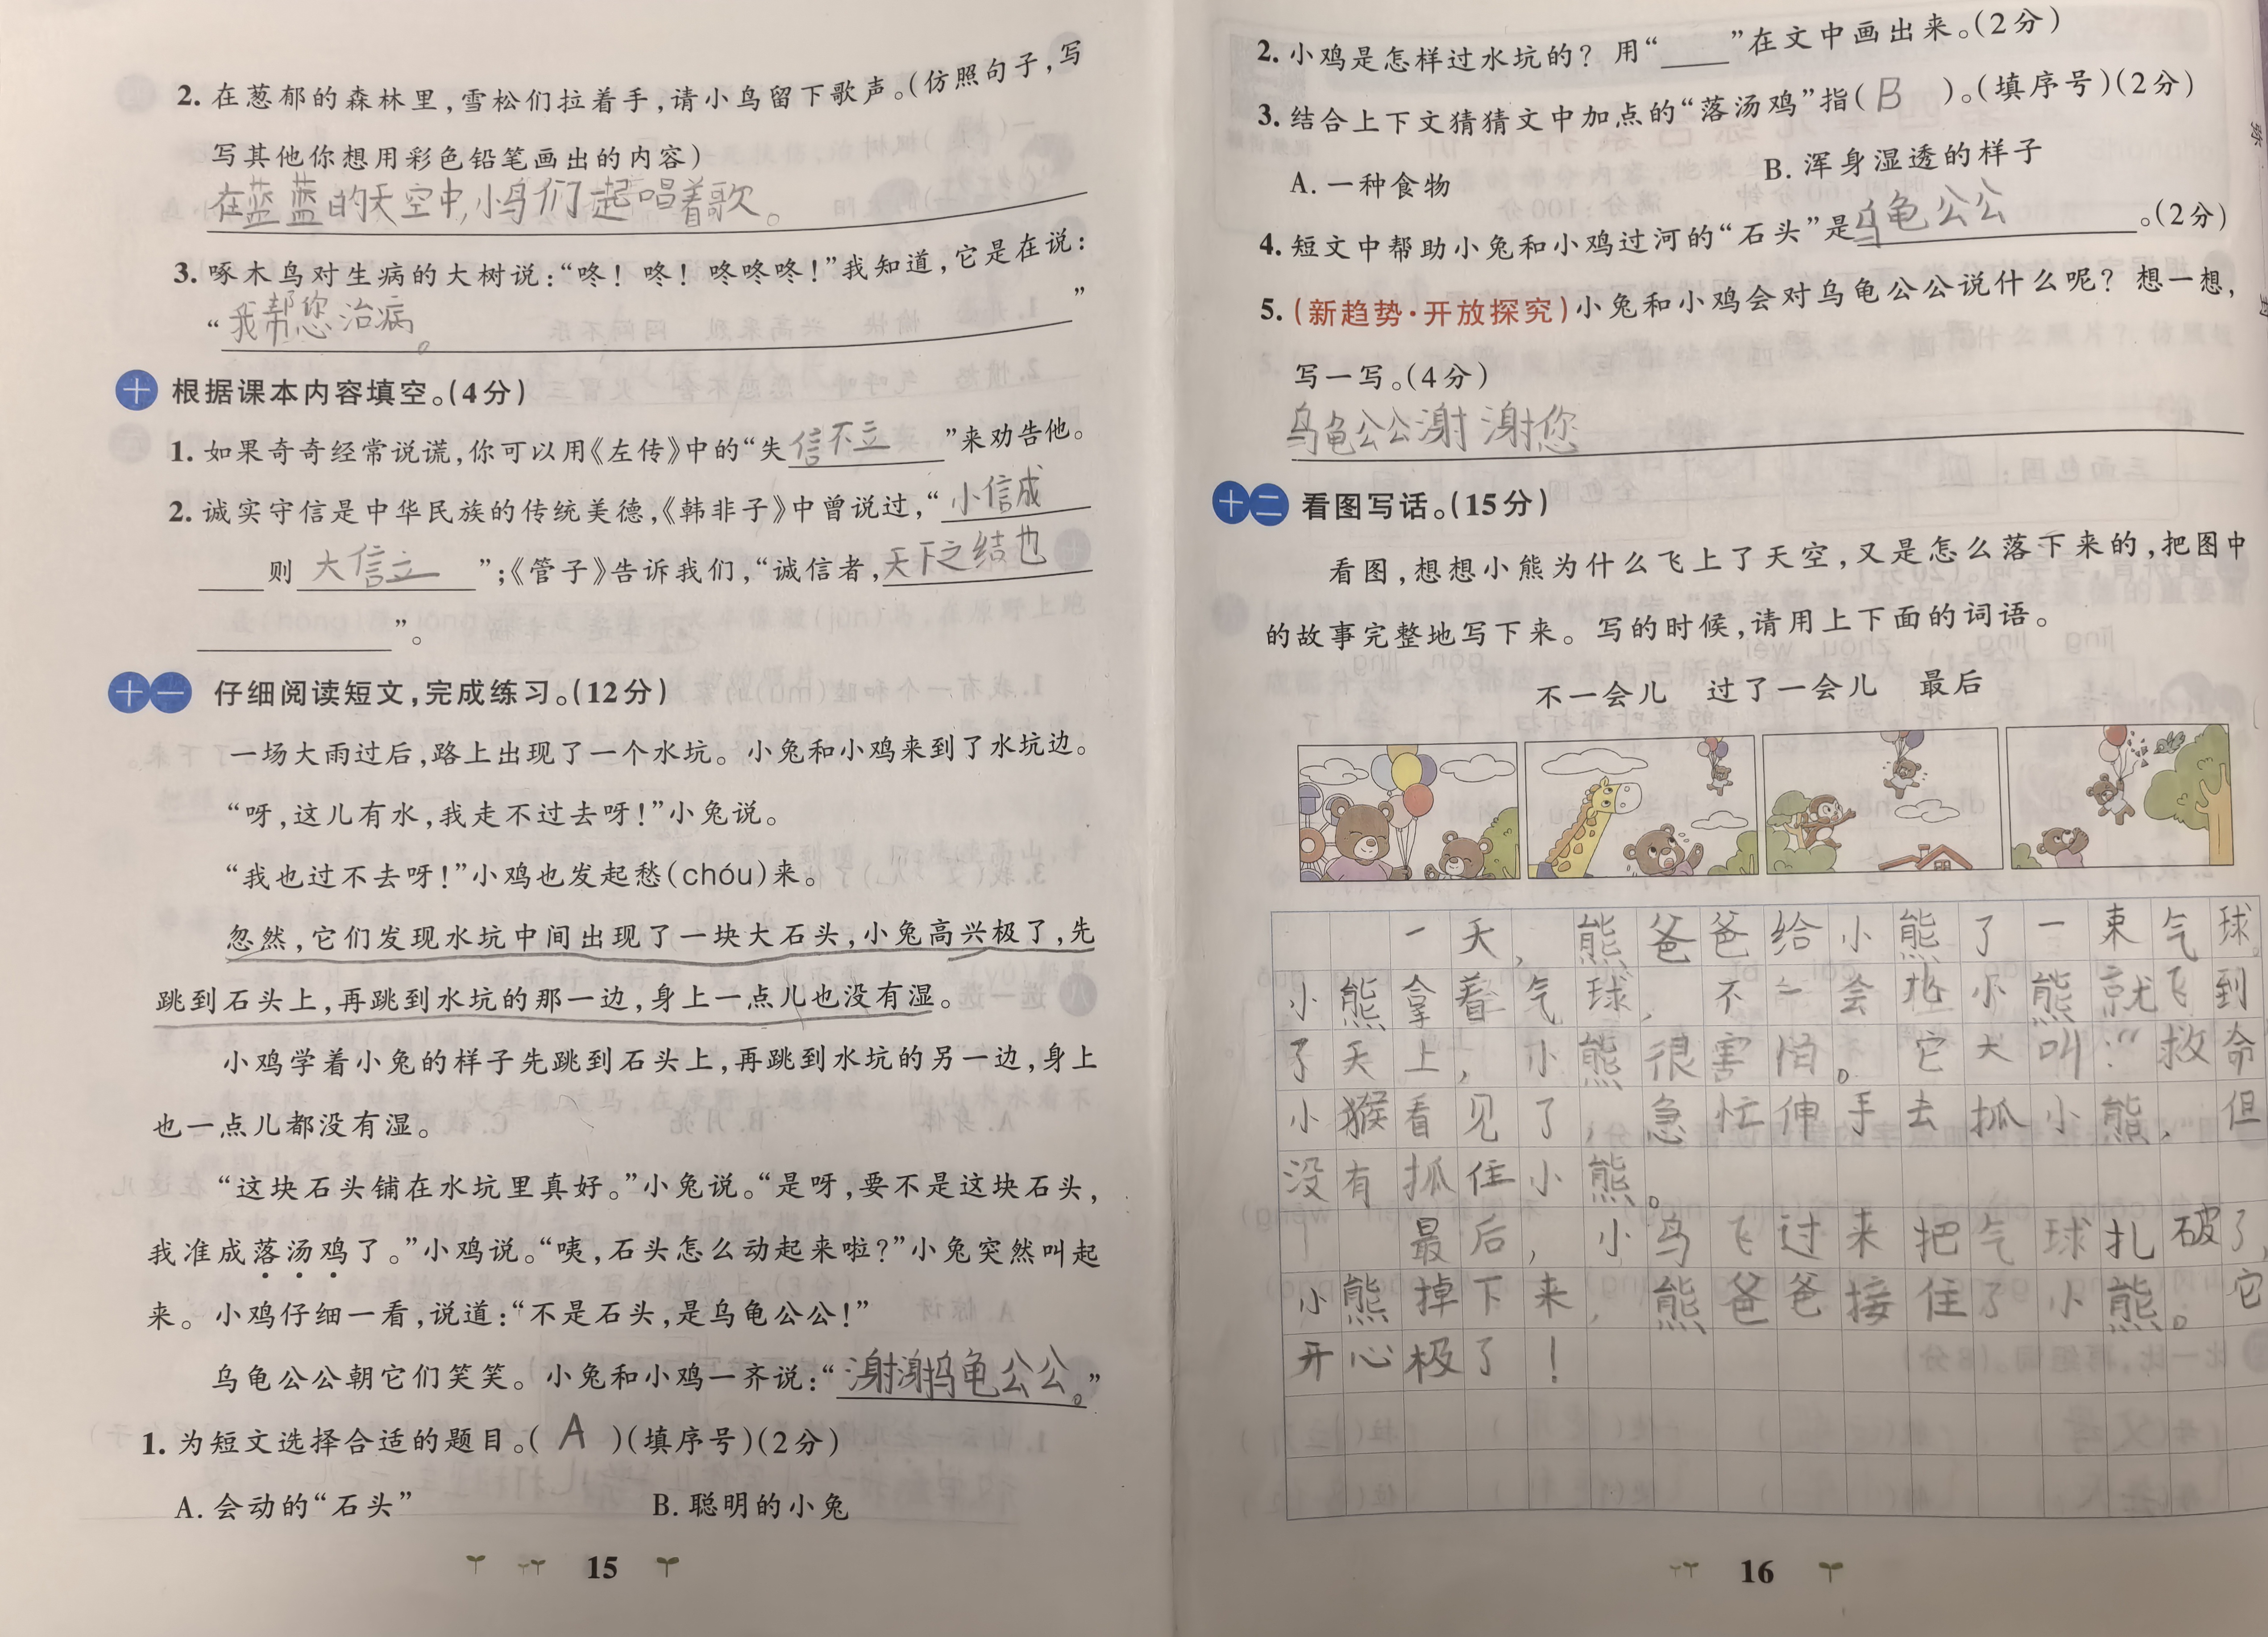 2. 在葱郁的森林里,雪松们拉着手,请小鸟留下歌声。(仿照句子,写
写其他你想用彩色铅笔画出的内容)
在蓝蓝的天空中,小鸟们一起唱着歌。
3. 啄木鸟对生病的大树说:“咚! 咚! 咚咚咚!”我知道,它是在说:
“我帮您治病。”
十 根据课本内容填空。(4分)
1. 如果奇奇经常说谎,你可以用《左传》中的“失信不立”来劝告他。
2. 诚实守信是中华民族的传统美德,《韩非子》中曾说过,“小信成
则大信立”;《管子》告诉我们,“诚信者,天下之结也
”。
十一 仔细阅读短文,完成练习。(12分)
一场大雨过后,路上出现了一个水坑。小兔和小鸡来到了水坑边。
“呀,这儿有水,我走不过去呀!”小兔说。
“我也过不去呀!”小鸡也发起愁(chóu)来。
忽然,它们发现水坑中间出现了一块大石头,小兔高兴极了,先
跳到石头上,再跳到水坑的那一边,身上一点儿也没有湿。
小鸡学着小兔的样子先跳到石头上,再跳到水坑的另一边,身上
也一点儿都没有湿。
“这块石头铺在水坑里真好。”小兔说。“是呀,要不是这块石头,
我准成落汤鸡了。”小鸡说。“咦,石头怎么动起来啦?”小兔突然叫起
来。小鸡仔细一看,说道:“不是石头,是乌龟公公!”
乌龟公公朝它们笑笑。小兔和小鸡一齐说:“谢谢乌龟公公。”
1. 为短文选择合适的题目。( A )(填序号)(2分)
A. 会动的“石头” B. 聪明的小兔
15
2. 小鸡是怎样过水坑的? 用“____”在文中画出来。(2分)
3. 结合上下文猜猜文中加点的“落汤鸡”指( B )。(填序号)(2分)
A. 一种食物 B. 浑身湿透的样子
4. 短文中帮助小兔和小鸡过河的“石头”是乌龟公公。(2分)
5. (新趋势·开放探究)小兔和小鸡会对乌龟公公说什么呢? 想一想,
写一写。(4分)
乌龟公公谢谢您
十二 看图写话。(15分)
看图,想想小熊为什么飞上了天空,又是怎么落下来的,把图中
的故事完整地写下来。写的时候,请用上下面的词语。
不一会儿 过了一会儿 最后
一天,熊爸爸给小熊了一束气球。
小熊拿着气球,不一会 小熊就飞到
了天上,小熊很害怕。它大叫:“救命
小猴看见了,急忙伸手去抓小熊,但
没有抓住小熊。
最后,小鸟飞过来把气球扎破了,
小熊掉下来,熊爸爸接住了小熊。它
开心极了!
16